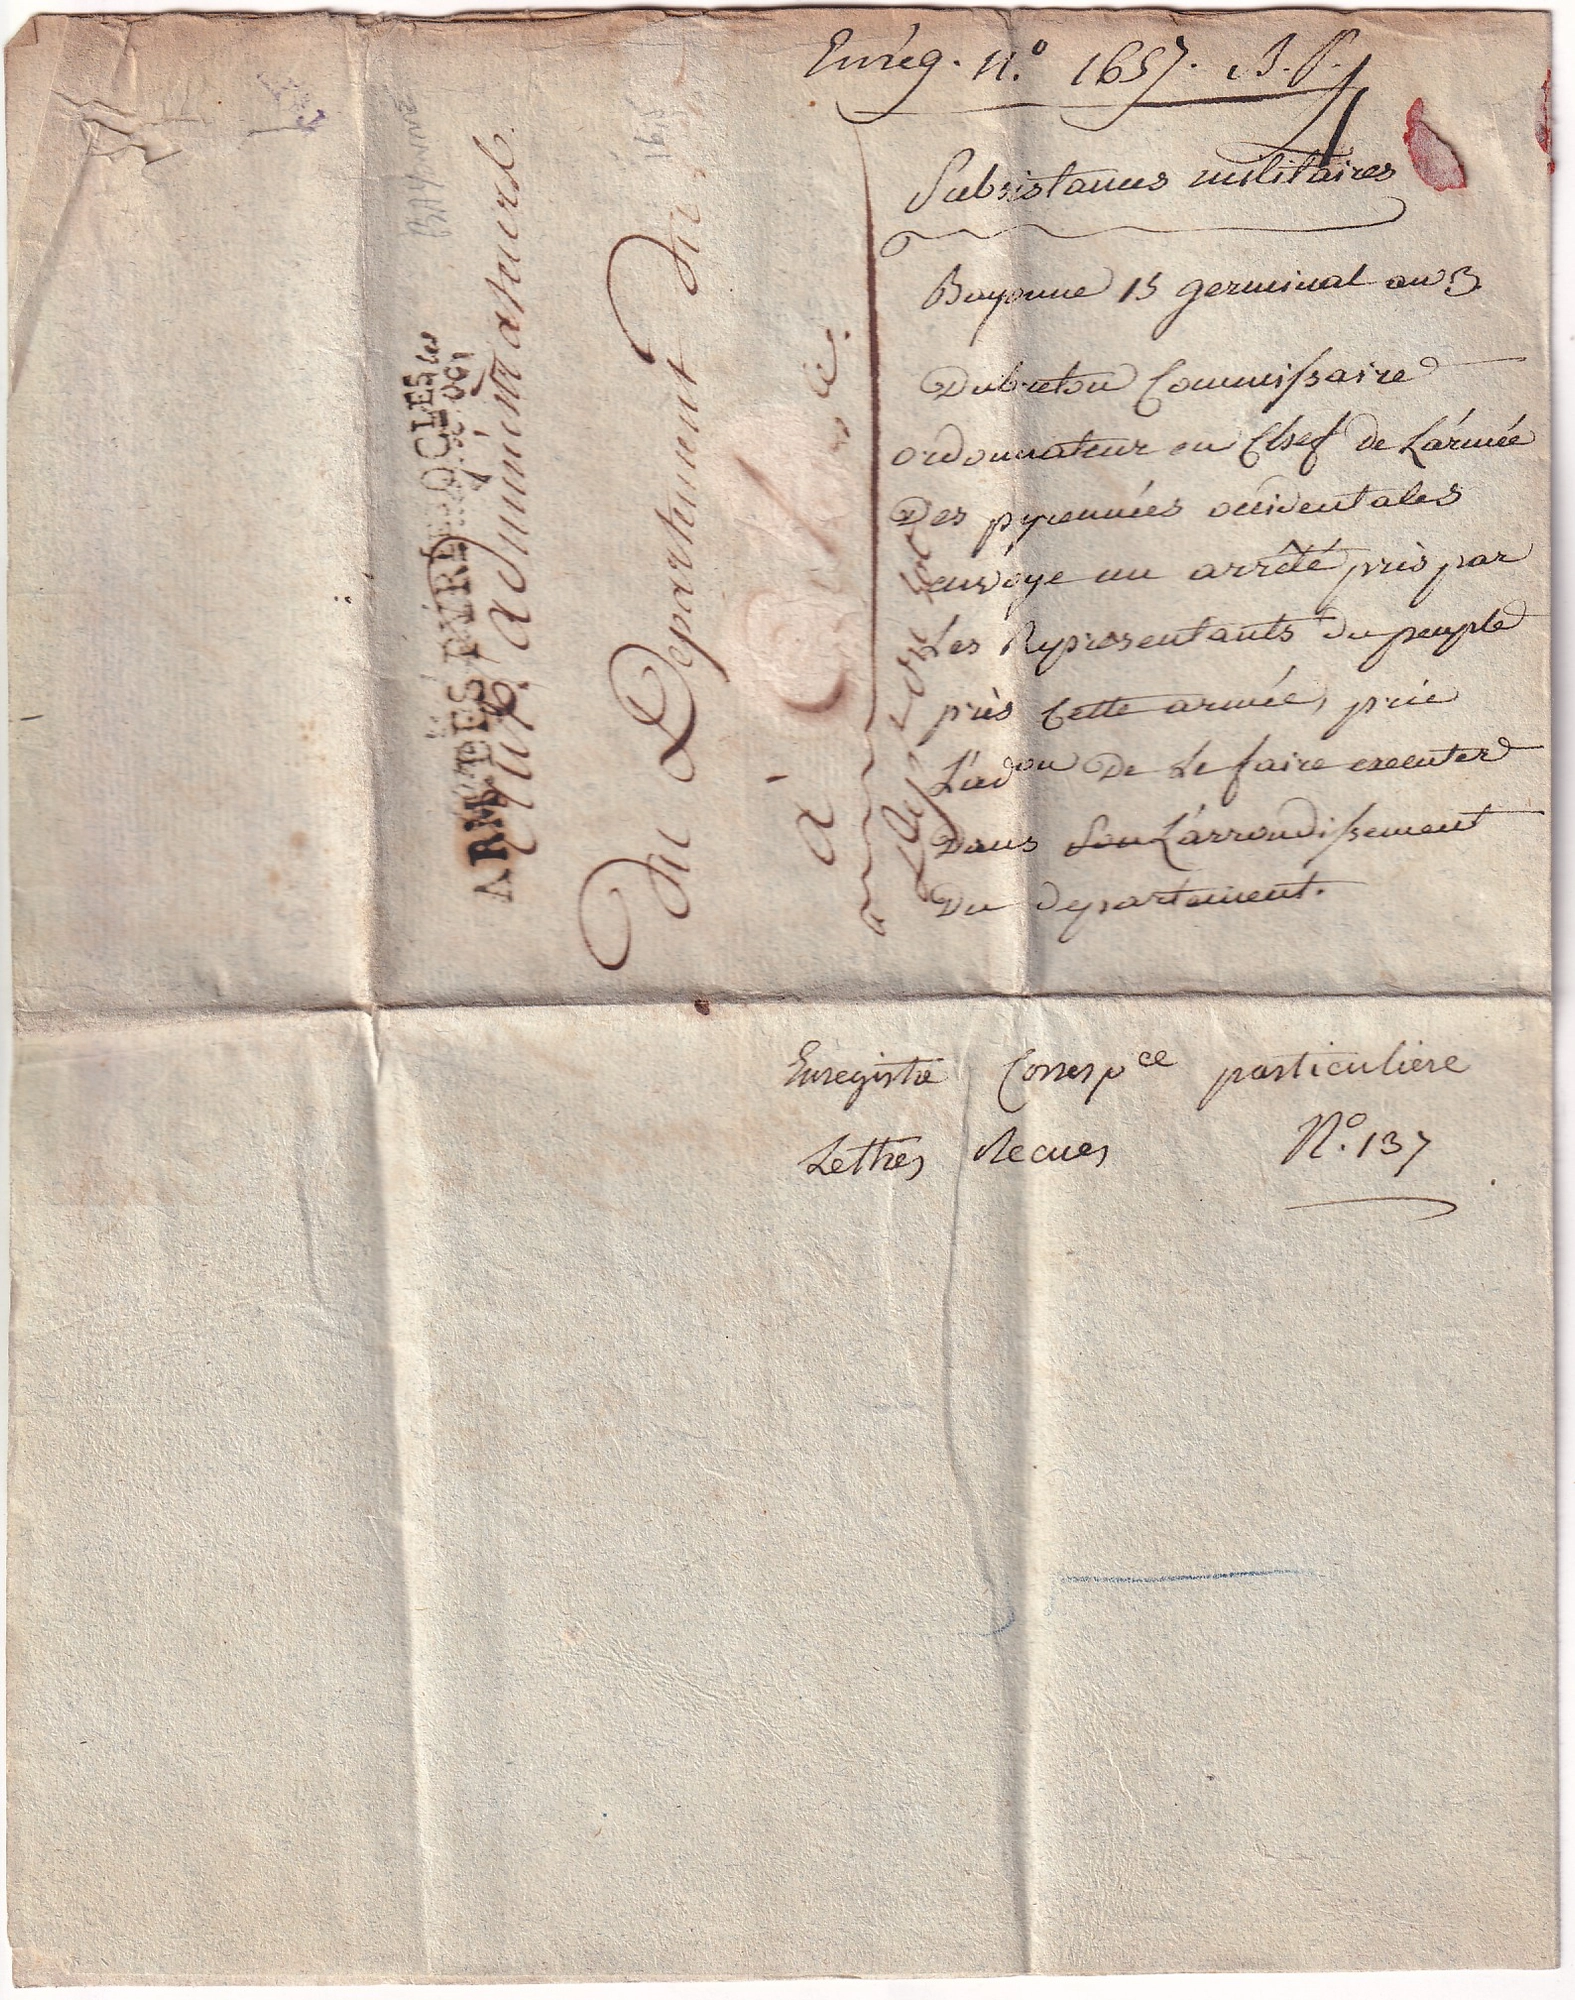 Enrég. N.º 1657. B. P.
Subsistances militaires
Bayonne 15 germinal an 3
Dubreton Commissaire
ordonnateur en Chef de L'armée
Des pyrennées occidentales
envoye un arrêté pris par
Les Représentants du peuple
près cette armée, prie
L'adon De Le faire executer
Dans son L'arrondissement
Du departement.
Enregistré Correspce particuliere
Lettres Recues N.º 137
ARM ÉES PYRÉ OCLES
administrateurs
du Departement du
à
BAYONNE